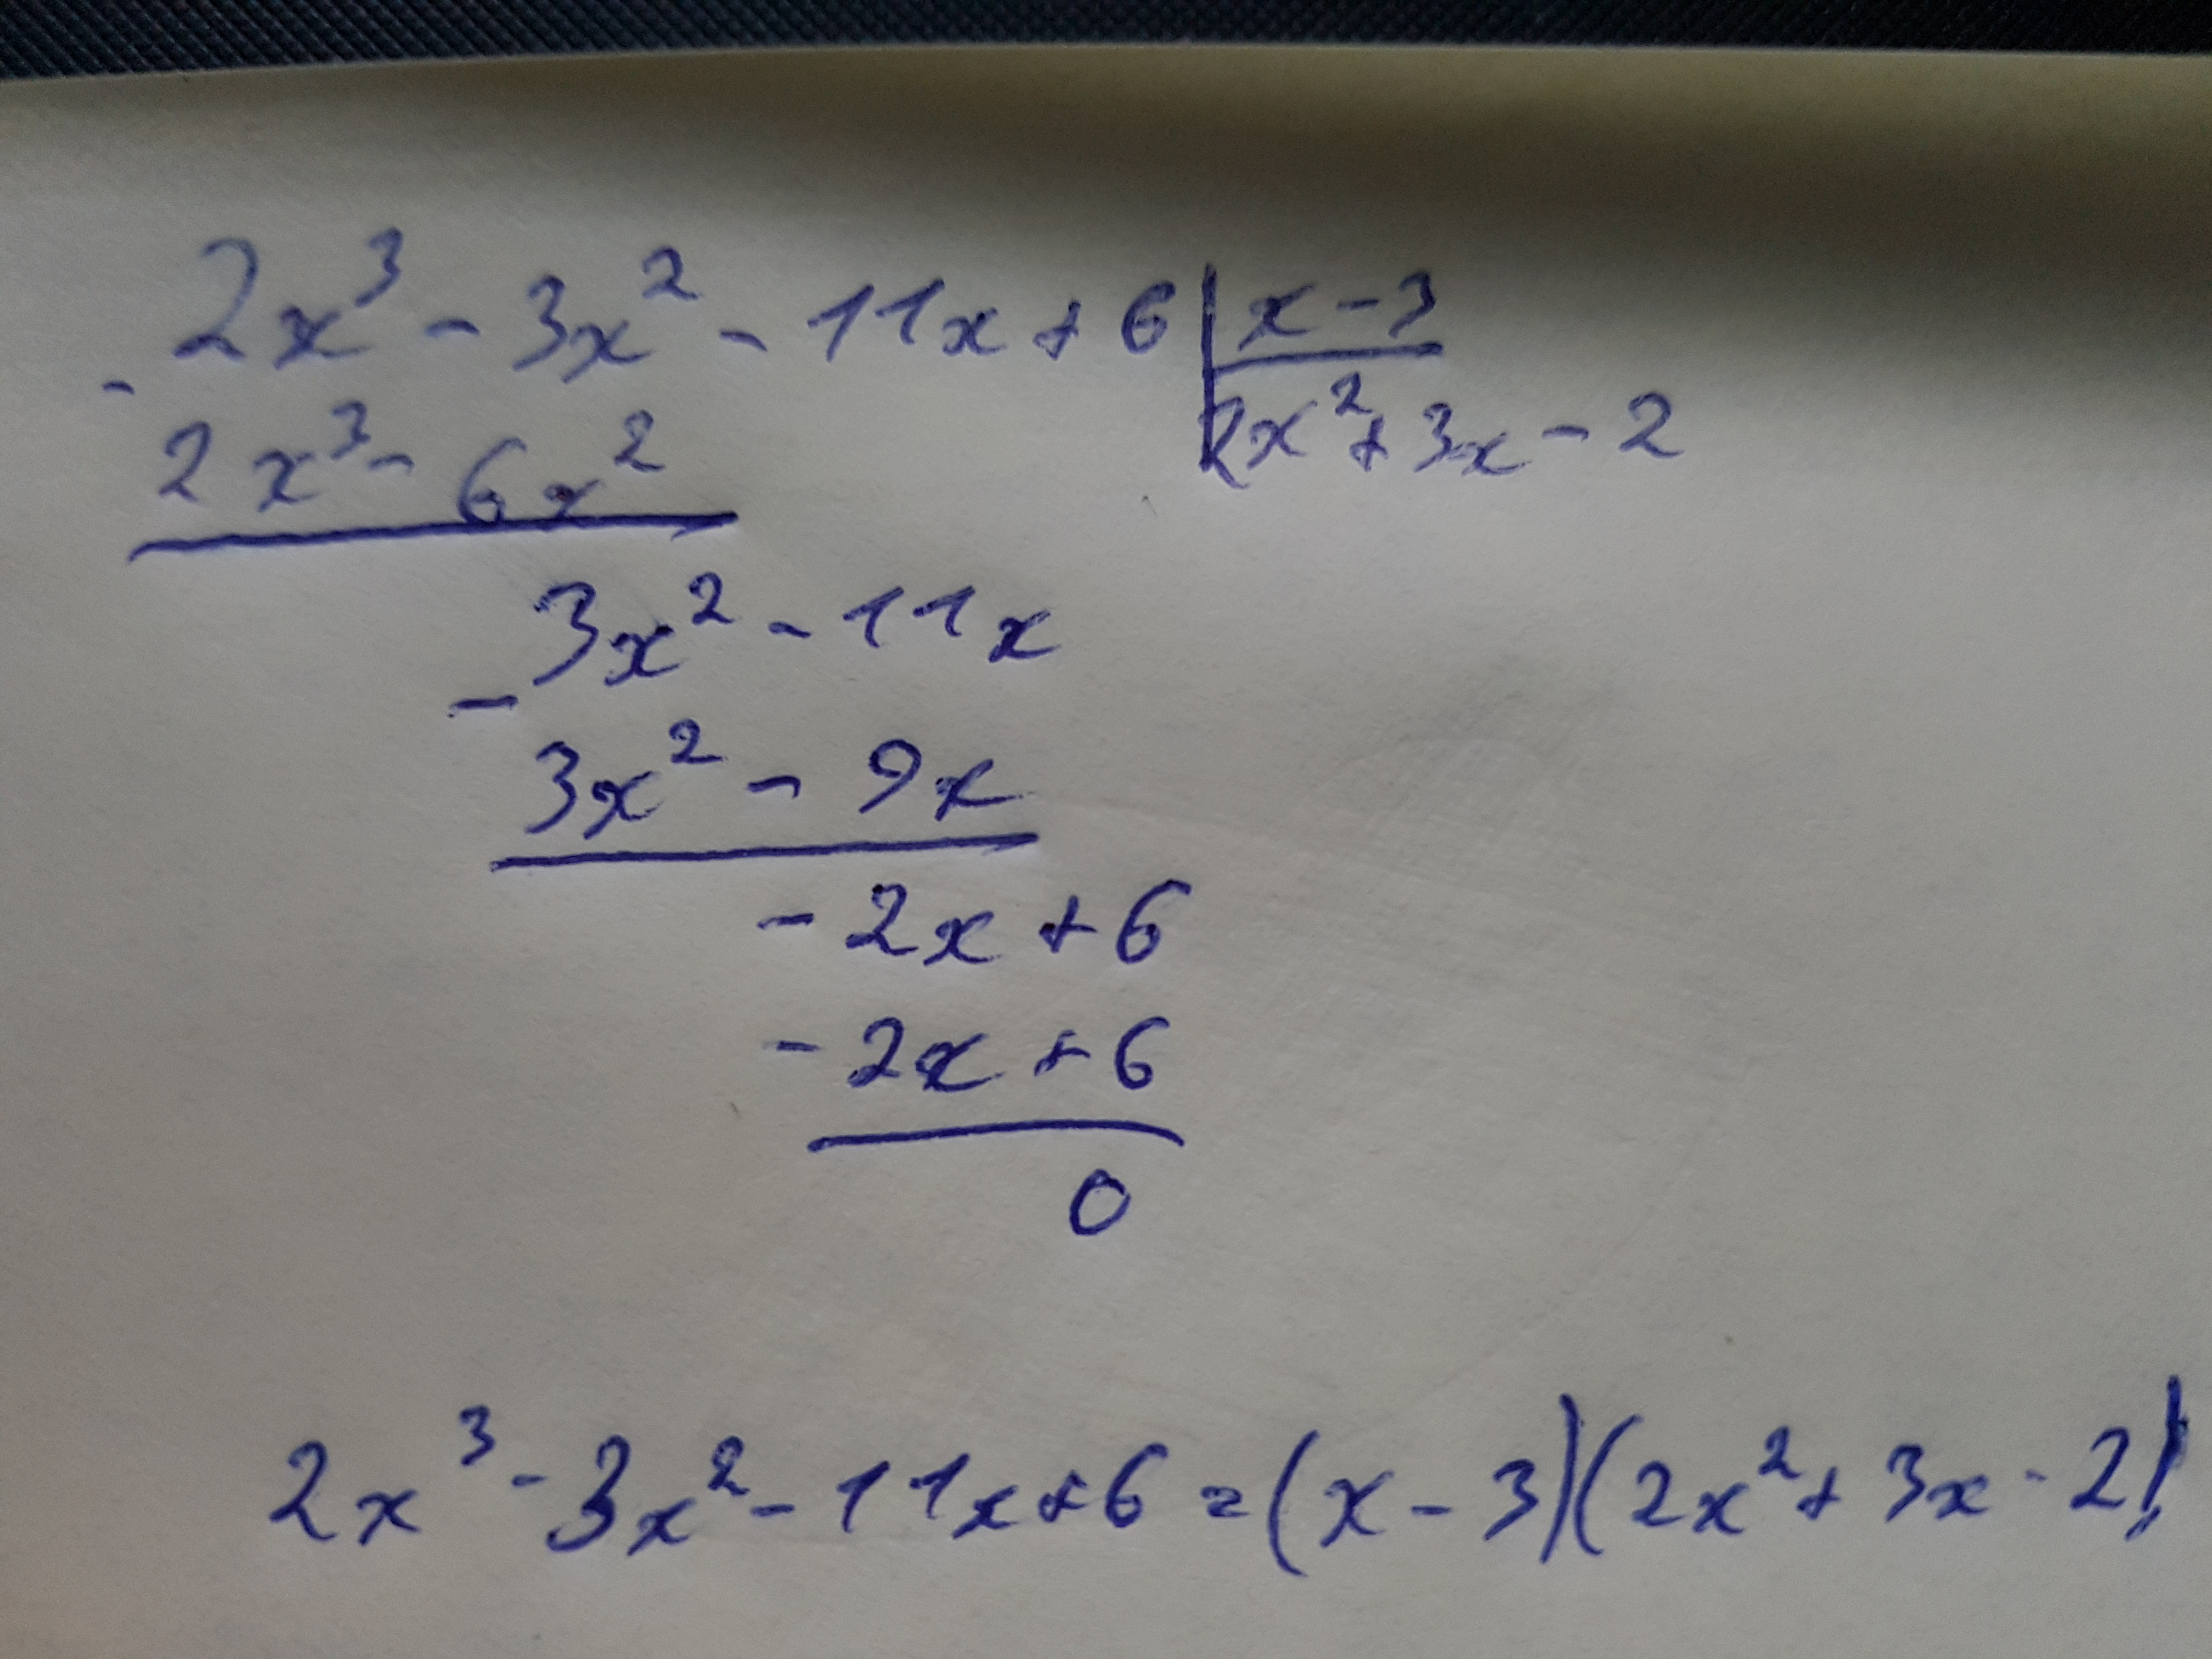 2x³ - 3x² - 11x + 6 | x - 3
- 2x³ - 6x² | 2x² + 3x - 2
3x² - 11x
-
3x² - 9x
- 2x + 6
- 2x + 6
0
2x³ - 3x² - 11x + 6 = (x - 3)(2x² + 3x - 2)